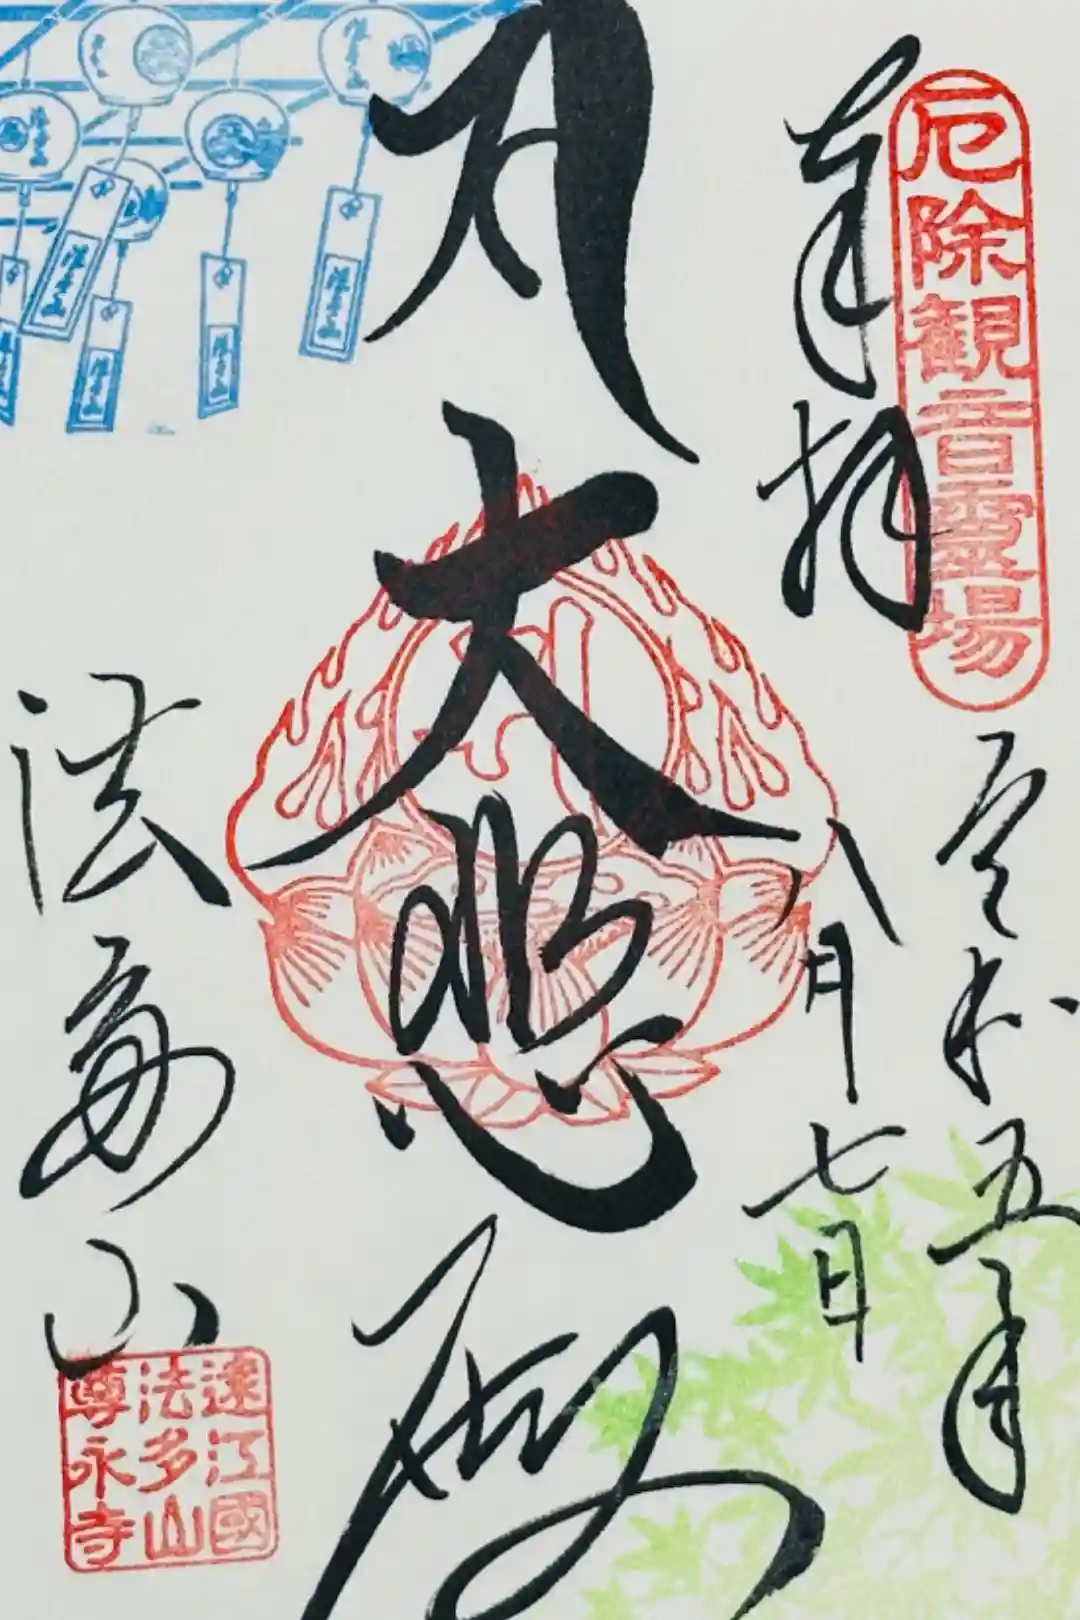 厄除観音霊場
奉拝
令和五年
八月七日
大悲殿
法多山
遠江國
法多山
尊永寺